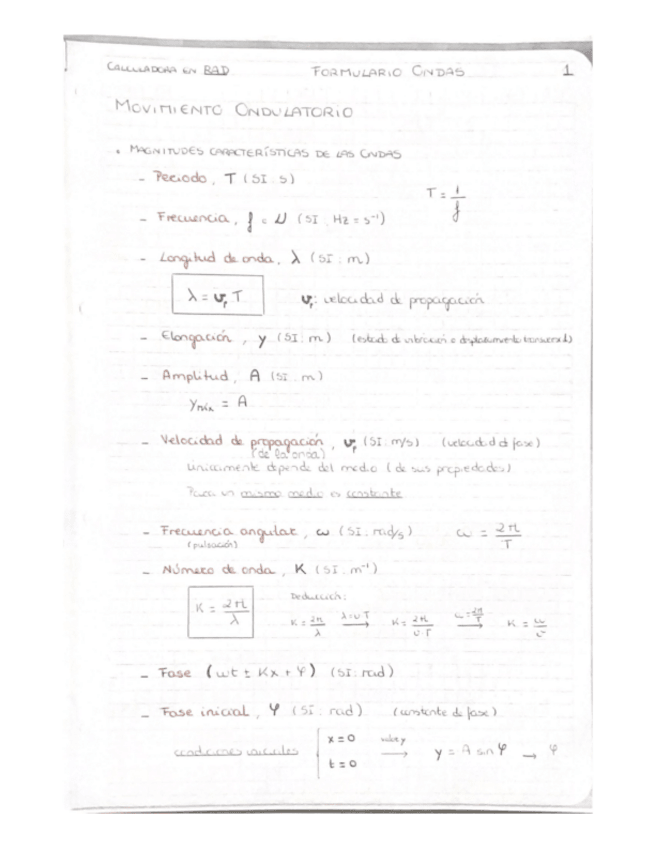 CALCULADORA EN RAD FORMULARIO ONDAS 1
MOVIMIENTO ONDULATORIO
• MAGNITUDES CARACTERÍSTICAS DE LAS ONDAS
- Periodo, T (SI: s) T = 1/f
- Frecuencia, f = ν (SI: Hz = s⁻¹)
- Longitud de onda, λ (SI: m)
λ = vₚ T vₚ: velocidad de propagación
- Elongación, y (SI: m) (estado de vibración o desplazamiento transversal)
- Amplitud, A (SI: m)
yₘáₓ = A
- Velocidad de propagación, vₚ (SI: m/s) (velocidad de fase)
(de la onda)
únicamente depende del medio (de sus propiedades)
Para un mismo medio es constante
- Frecuencia angular, ω (SI: rad/s) ω = 2π/T
(pulsación)
- Número de onda, K (SI: m⁻¹)
K = 2π/λ
Deducción:
K = 2π/λ λ=v·T → K = 2π/v·T ω=2π/T → K = ω/v
- Fase (ωt ± Kx + φ) (SI: rad)
- Fase inicial, φ (SI: rad) (constante de fase)
condiciones iniciales x = 0 t = 0 valor y → y = A sin φ → φ